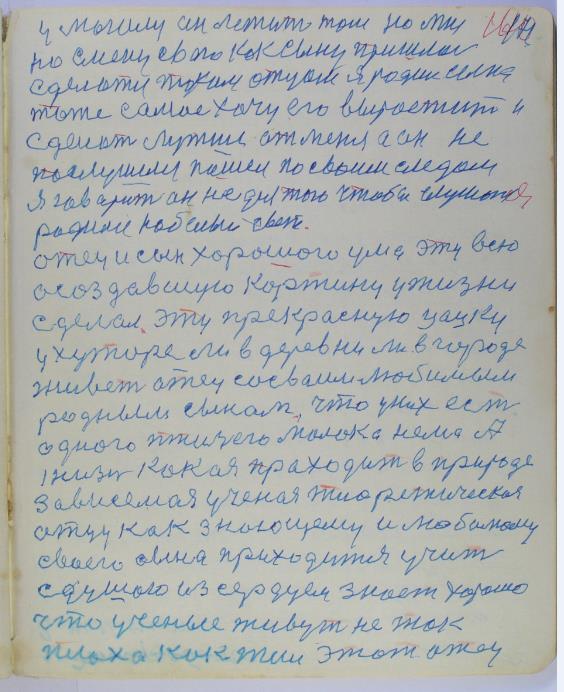 у могилу он летить той но ми
но смену свого как сыну пришлос
сделоти таким отцом я родил сына
тоже самое хочу его выростит и
сделат лутши от меня а он не
послушили пошел по своим следом
я говарит он не для того чтоби слушот
родился на белый свет.
отец и сын хорошого ума эту всю
осоздавшую картину ужизни
сделал. эту прекрасную цацку
ухуторе ли в деревни ли в городе
живет отец сосвоим любимым
родным сынам, что уних ест
одного птичего молока нема А
жизн кокая праходит в природе
зависемая ученая тиоретическая
отцу как знающему и любимому
своего сына приходится учит
сдушою из сердцем знает хорошо
что ученые живут не так
плоха как жил этот отец